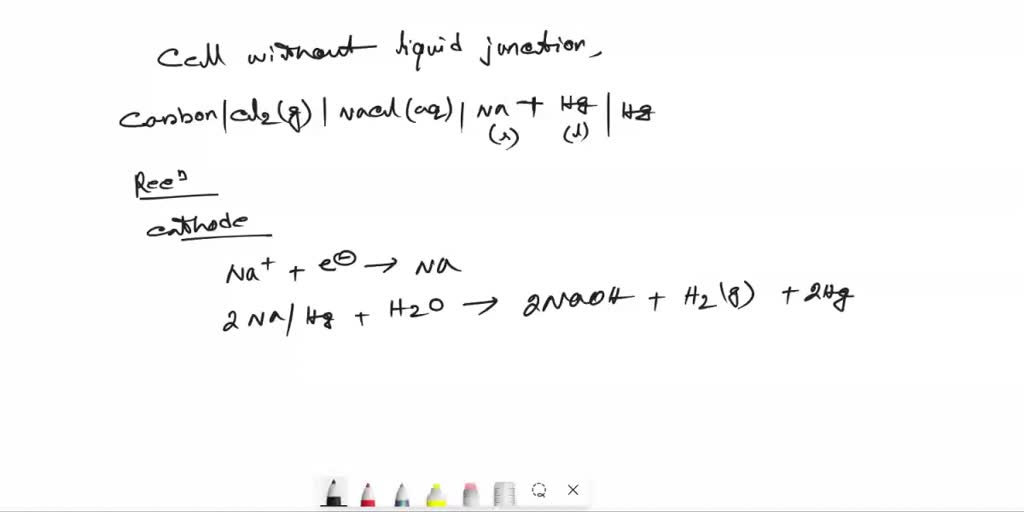 Cell without liquid junction,
Carbon | Cl2(g) | NaCl(aq) | Na + Hg | Hg
(s) (l)
Recⁿ
Cathode
Na+ + e⊖ → Na
2 Na/Hg + H2O → 2NaOH + H2(g) + 2Hg